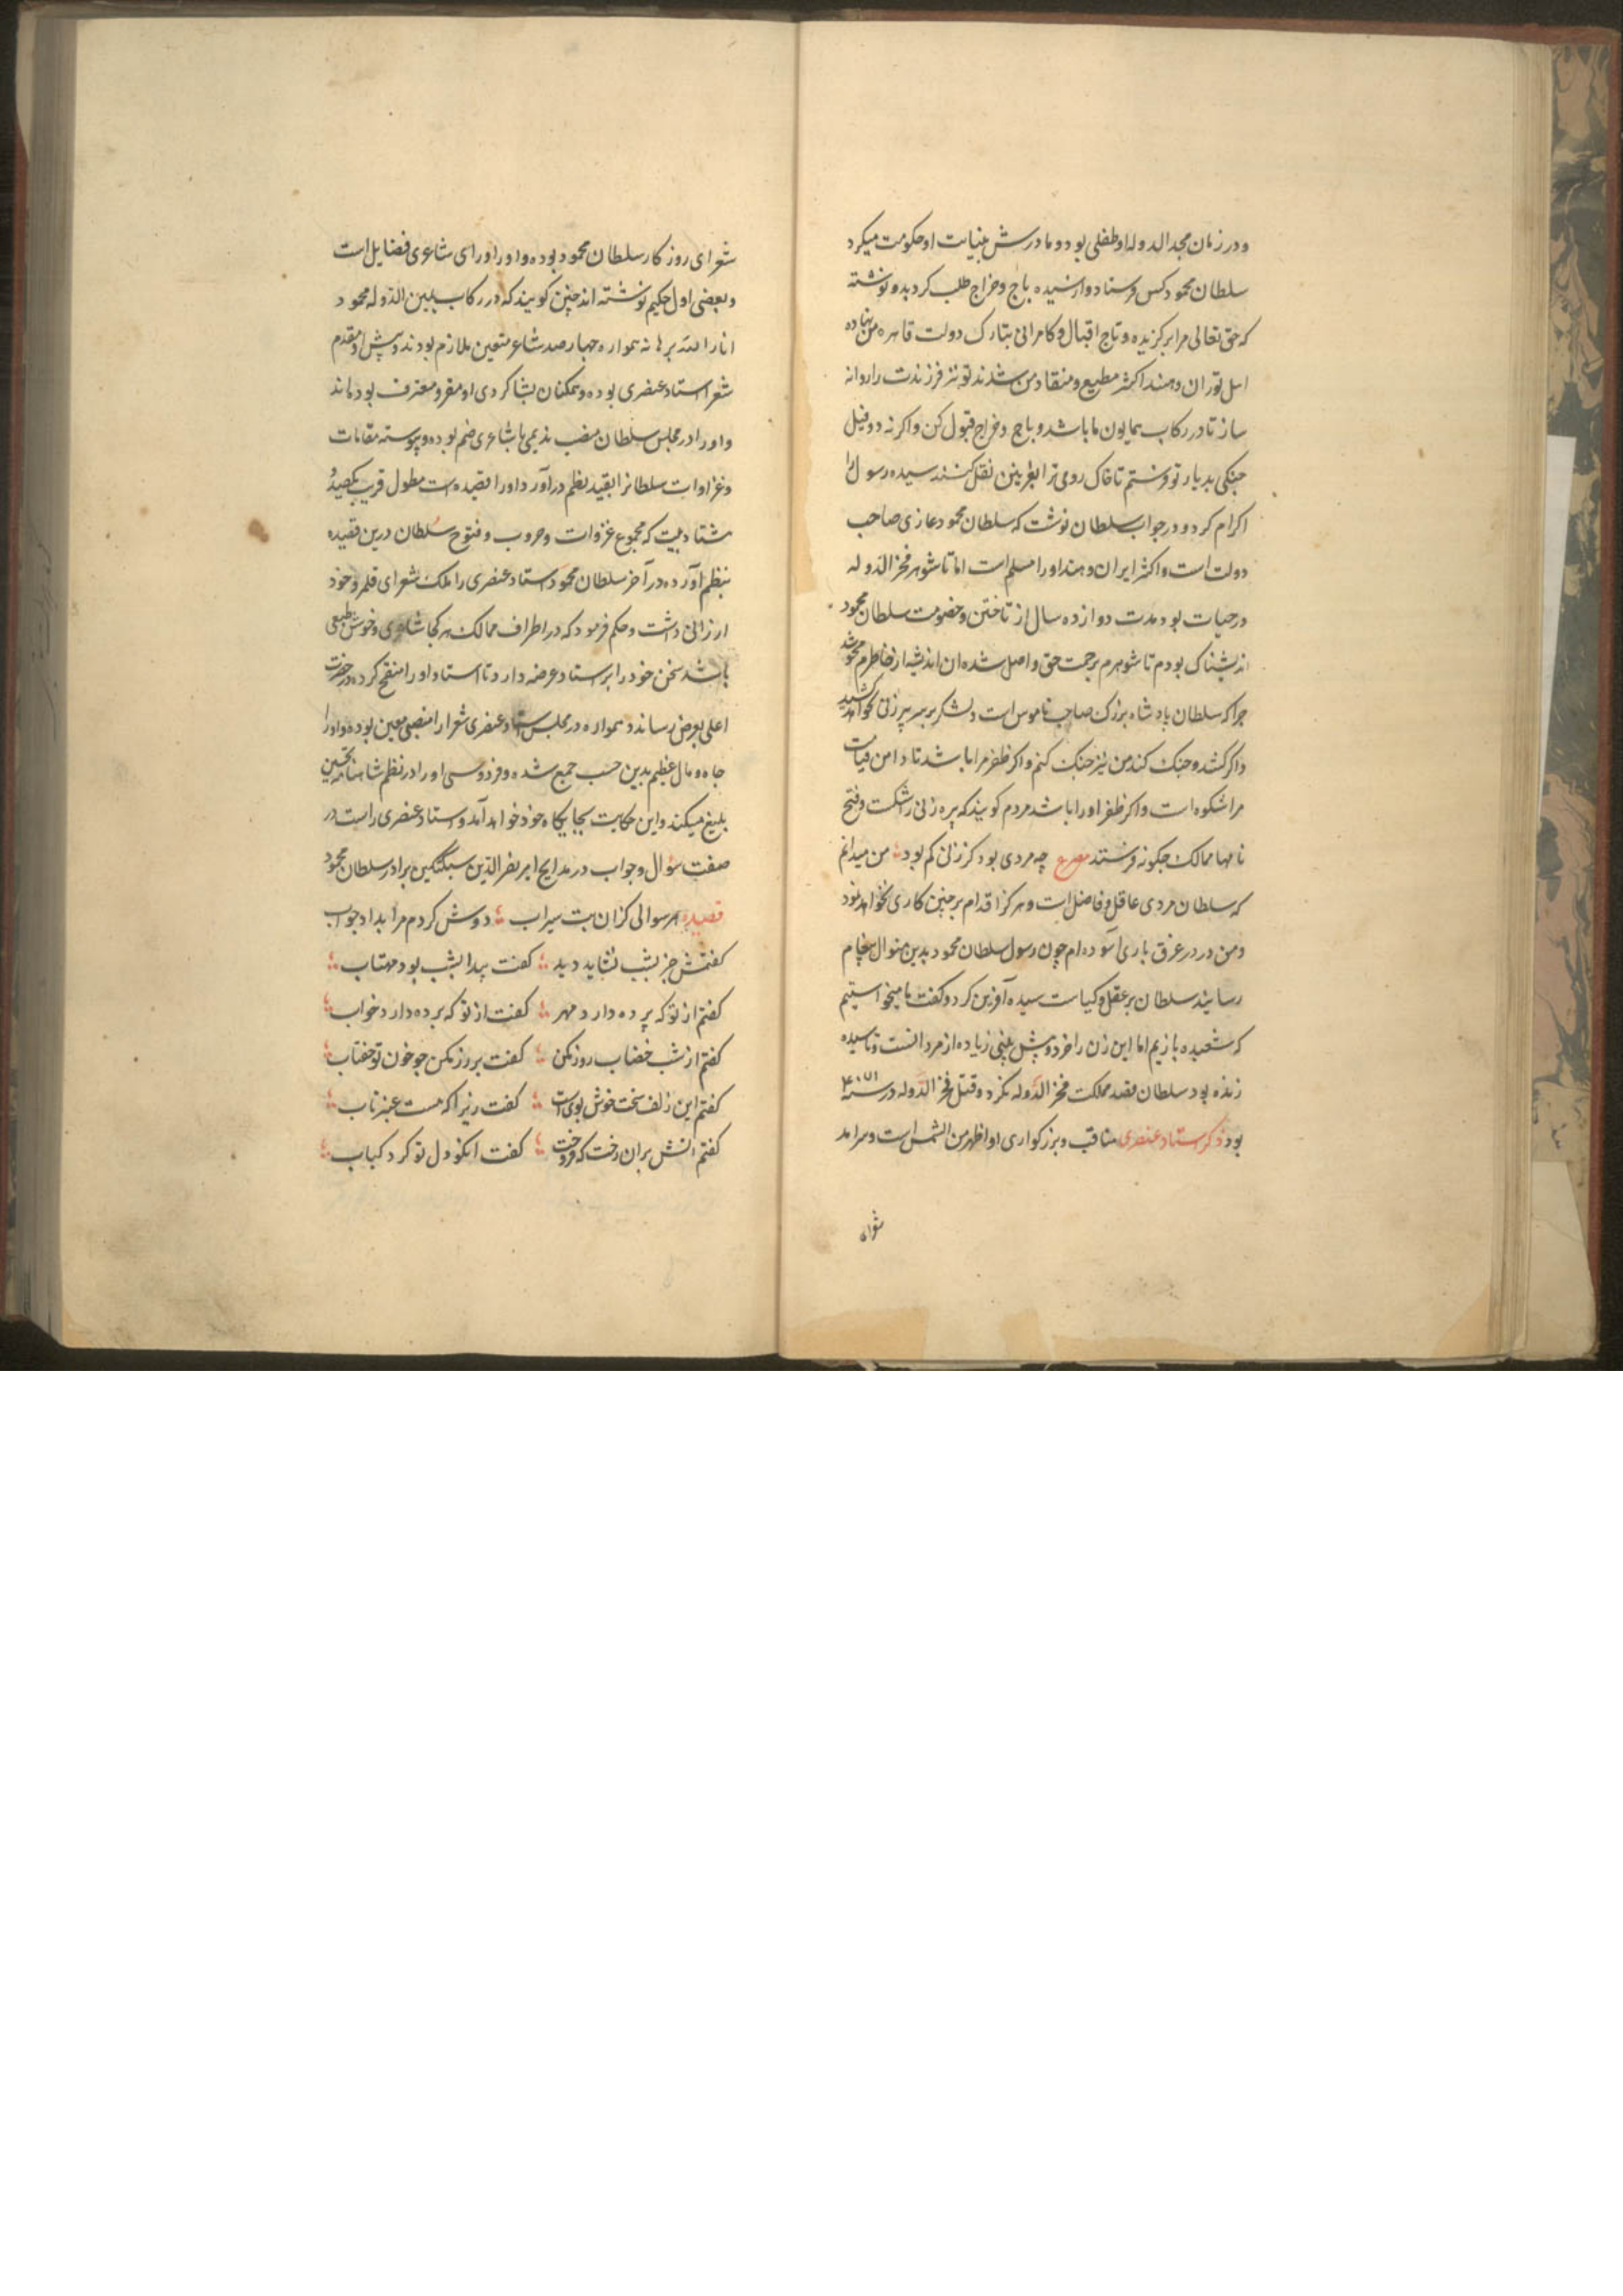 ودر زمان مجد الدوله او طفلی بود و مادرش بنیابت او حکومت میکرد
سلطان محمود کس فرستاد و از سیده باج و خراج طلب کرد بدو نوشته
که حق تعالی مرا برکزیده و تاج اقبال و کامرانی بتارک دولت قاهره من نهاده
اهل توران و هند اکثر مطیع و منقاد من شدند تو نیز فرزندت را روانه
ساز تا در رکاب همایون ما باشد و باج و خراج قبول کن و اکر نه دو فیل
جنکی بدیار تو فرستم تا خاک ری ترا بغزنین نقل کنند سیده رسول را
اکرام کرد و در جواب سلطان نوشت که سلطان محمود غازی صاحب
دولت است و اکثر ایران و هند او را مسلم است اما تا شوهر فخر الدوله
در حیات بود مدت دوازده سال از تاختن و خصومت سلطان محمود
اندیشناک بودم تا شوهرم برحمت حق واصل شده ان اندیشه از خاطرم محو شد
چرا که سلطان پادشاه بزرک صاحب ناموس است و لشکر بر سر پیر زنی نخواهد کشید
و اکر کشد و جنک کند من نیز جنک کنم و اکر ظفر مرا باشد تا دامن قیامت
مرا شکوه است و اکر ظفر او را باشد مردم کویند که پیره زنی را شکست و فتح
نامها ممالک چکونه فرستد مصرع چه مردی بود کز زنی کم بود من میدانم
که سلطان مردی عاقل و فاضل است و هرکز اقدام بر چنین کاری نخواهد نمود
و من در عرق باری آسوده ام چون رسول سلطان محمود بدین منوال پیغام
رسانید سلطان بر عقل و کیاست سیده آفرین کرد و کفت ما میخواستیم
که شعبده بازیم اما این زن را خرد و پیش بینی زیاده از مردانست و تا سیده
زنده بود سلطان قصد مملکت فخر الدوله نکرد و قتل فخر الدوله در سنه
بود ذکر استاد عنصری مناقب و بزرکواری او اظهر من الشمس است و سرامد
شعرای
شعرای روزکار سلطان محمود بوده و او را ورای شاعری فضایل است
و بعضی اول حکیم نوشته اند چنین کویند که در رکاب یمین الدوله محمود
انار الله برهانه همواره چهارصد شاعر متعین ملازم بودند و پیش و مقدم
شعرا استاد عنصری بوده و همکنان بشاکردی او مقر و معترف بوده اند
و او را در مجلس سلطان منصب ندیمی با شاعری ضم بوده و پیوسته مقامات
و غزاوات سلطانرا بقید نظم درآورد و او را قصیده است مطول قریب یکصد و
هشتاد بیت که مجموع غزوات و حروب و فتوح سلطان درین قصیده
بنظم آورده در آخر سلطان محمود استاد عنصری را ملک شعرای قلمرو خود
ارزانی داشت و حکم فرمود که در اطراف ممالک هر کجا شاعری و خوش طبعی
باشد سخن خود را بر استاد عرضه دارد تا استاد او را منقح کرده در حضرت
اعلی بعرض رساند و همواره در مجلس استاد عنصری شعرا را منصبی معین بوده و او را
جاه و مال عظیم بدین حسب جمع شده و فردوسی او را در نظم شاهنامه تحسین
بلیغ میکند و این حکایت بجایکاه خود خواهد آمد و استاد عنصری راست در
صفت سؤال و جواب در مدایح امیر نصر الدین سبکتکین برادر سلطان محمود
قصیده هر سوالی کزان بت سیراب دوش کردم مرا بداد جواب
کفتمش جز بشب نشاید دید کفت پیدا بشب بود مهتاب
کفتم از تو که پرده دارد مهر کفت از تو که پرده دارد خواب
کفتم از شب خضاب روز مکن کفت بر روز مکن چو خون تو خضاب
کفتم این زلف سخت خوش بوی است کفت زیرا که هست عنبر ناب
کفتم آتش بران رخت که فروخت کفت انکو دل تو کرد کباب